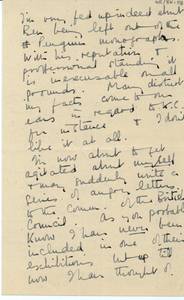 I'm very fed up indeed about
Ben being left out of the
Penguin monographs.
With his reputation &
professional standing it
is inexcusable on all
grounds. Many disturbing
facts come to one's
ears in regard to K.C.
for instance & I don't
like it at all.
I'm now about to get
agitated about myself
& may suddenly write a
series of angry letters
to the Comm. of the British
Council, as you probably
know I have never been
included in one of their
exhibitions but up till
now I have thought of